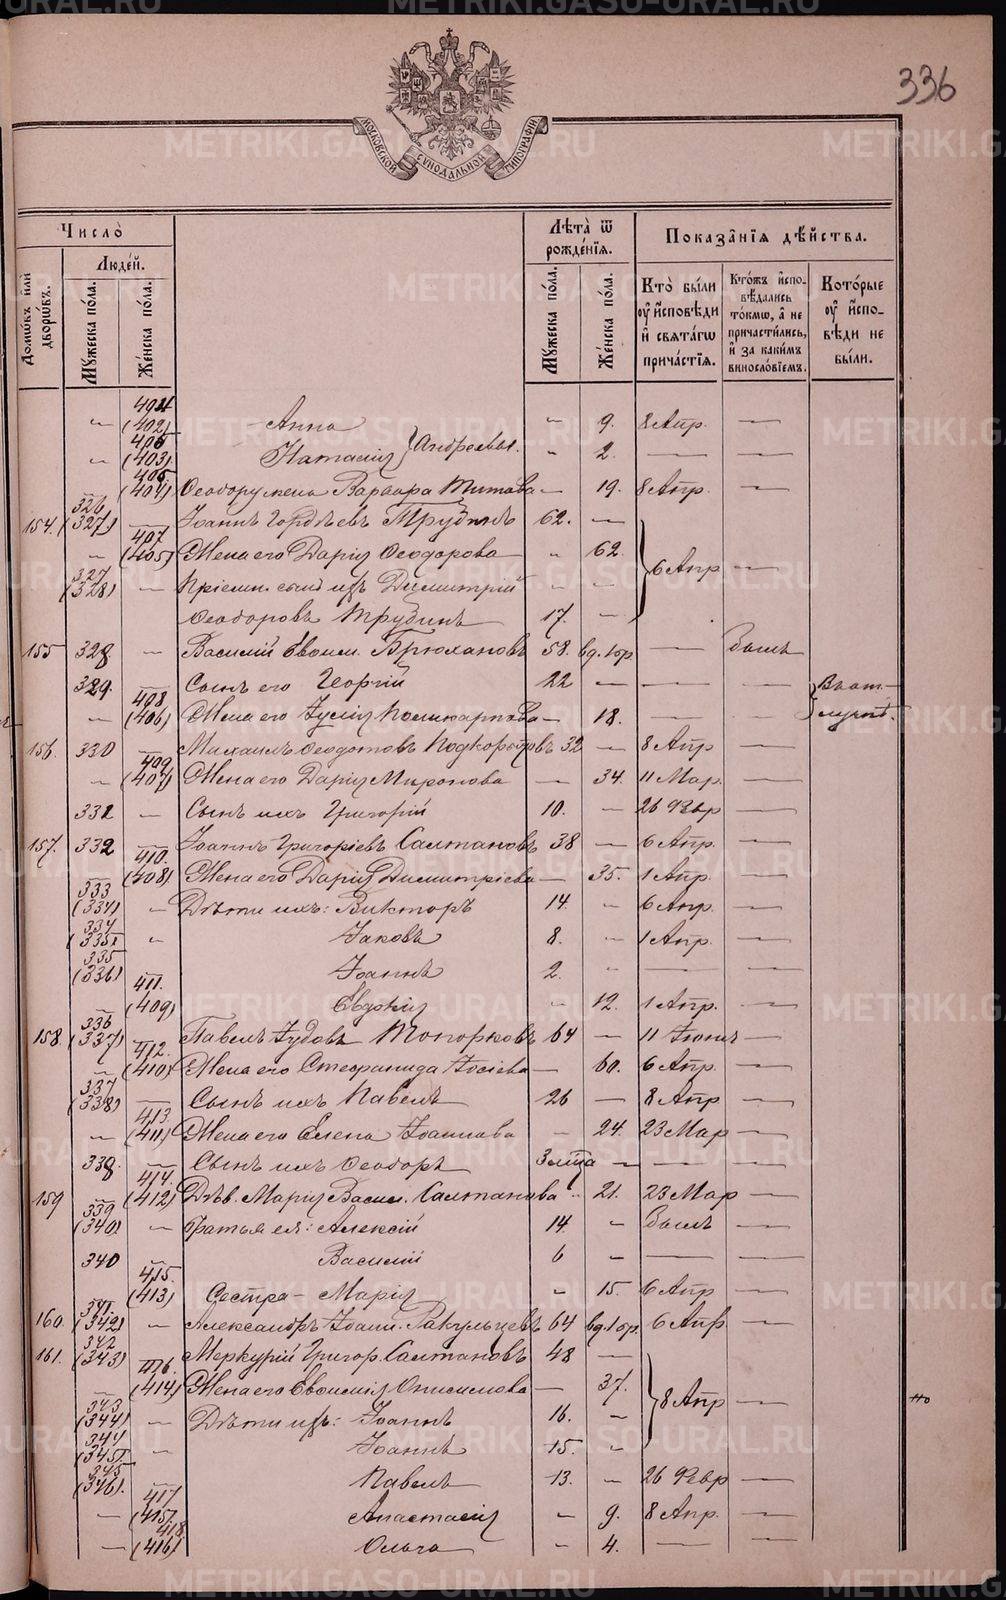 METRIKI.GASO-URAL.RU
336
МОСКОВСКОЙ СѴНОДАЛЬНОЙ ТИПОГРАФІИ
Число̀
Люде́й.
Домѡ́въ и҆лѝ дворѡ́въ.
Мꙋ́жеска по́ла.
Же́нска по́ла.
Лѣ́та ѿ рожде́нїѧ.
Мꙋ́жеска по́ла.
Же́нска по́ла.
Показа̑нїѧ дѣ́йства.
Кто̀ бы́ли ᲂу҆ и҆́сповѣди и҆ свѧта́гѡ прича́стїѧ.
Кто́жъ и҆спо-вѣ́дались то́кмѡ, а҆ не причасти́лись, и҆ за каки́мъ винослові́емъ.
Кото́рые ᲂу҆ и҆́спо-вѣди не бы́ли.
" 404 (402) Анна " 9. 8 Апр. —
" 405 (403) Натасія } Андреевы. " 2. — —
406 (404) Ѳеодору жена Варвара Титова — 19. 8 Апр. —
154. 326 (327) — Іоаннъ Гордѣевъ Трубинъ 62. —
" 407 (405) Жена его Дарія Ѳеодорова " 62. } 6 Апр —
327 (328) — Пріемн. сынъ ихъ Димитрій " —
Ѳеодоровъ Трубинъ 17. —
155 328 — Василій Евѳим. Брюхановъ 58. вд. 1 бр — Былъ
329. — Сынъ его Георгій 22 — — — } Въ от-
" 408 (406) Жена его Іулія Поликарпова — 18. — — лучкѣ.
156. 330 — Михаилъ Ѳеодотовъ Подкорытовъ 32 — 8 Апр —
" 409 (407) Жена его Дарія Миронова — 34. 11 Мар. —
331 — Сынъ ихъ Григорій 10. — 26 Февр —
157. 332 — Іоаннъ Григоріевъ Салтановъ 38 — 6 Апр. —
410. (408) Жена его Дарія Димитріева — 35. 1 Апр. —
333 (334) " Дѣти ихъ: Викторъ 14. " 6 Апр. —
334 (335) " Іаковъ 8. " 1 Апр. —
335 (336) Іоаннъ 2. " — —
411. (409) Евдокія " 12. 1 Апр. —
158. 336 (337) Павелъ Іудовъ Топорковъ 64 — 11 Іюнь —
" 412. (410) Жена его Стефанида Іосіева — 60. 6 Апр. —
337 (338) — Сынъ ихъ Павелъ 26 — 8 Апр —
" 413 (411) Жена его Елена Іоаннова " 24. 23 Мар —
338. — Сынъ ихъ Ѳеодоръ 3 лѣта — — —
159 414. (412) Дѣв. Марія Васил. Салтанова " 21. 23 Мар —
339 (340) — Братья ея: Алексій 14 " Былъ —
340 Василій 6 — — —
415. (413) Сестра — Марія " 15. 6 Апр —
160. 341. (342) — Александръ Іоанн. Ракульцевъ 64 вд. 1 бр. 6 Апр —
161. 342 (343) Меркурій Григор. Салтановъ 48 —
— 416. (414) Жена его Евѳимія Онисимова — 37. } 8 Апр —
343 (344) — Дѣти ихъ: Іоаннъ 16. "
344 (345) — Іоаннъ 15. "
345 (346) Павелъ 13. " 26 Февр —
— 417 (415) Анастасія " 9. 8 Апр. —
— 418 (416) Ольга " 4. — —